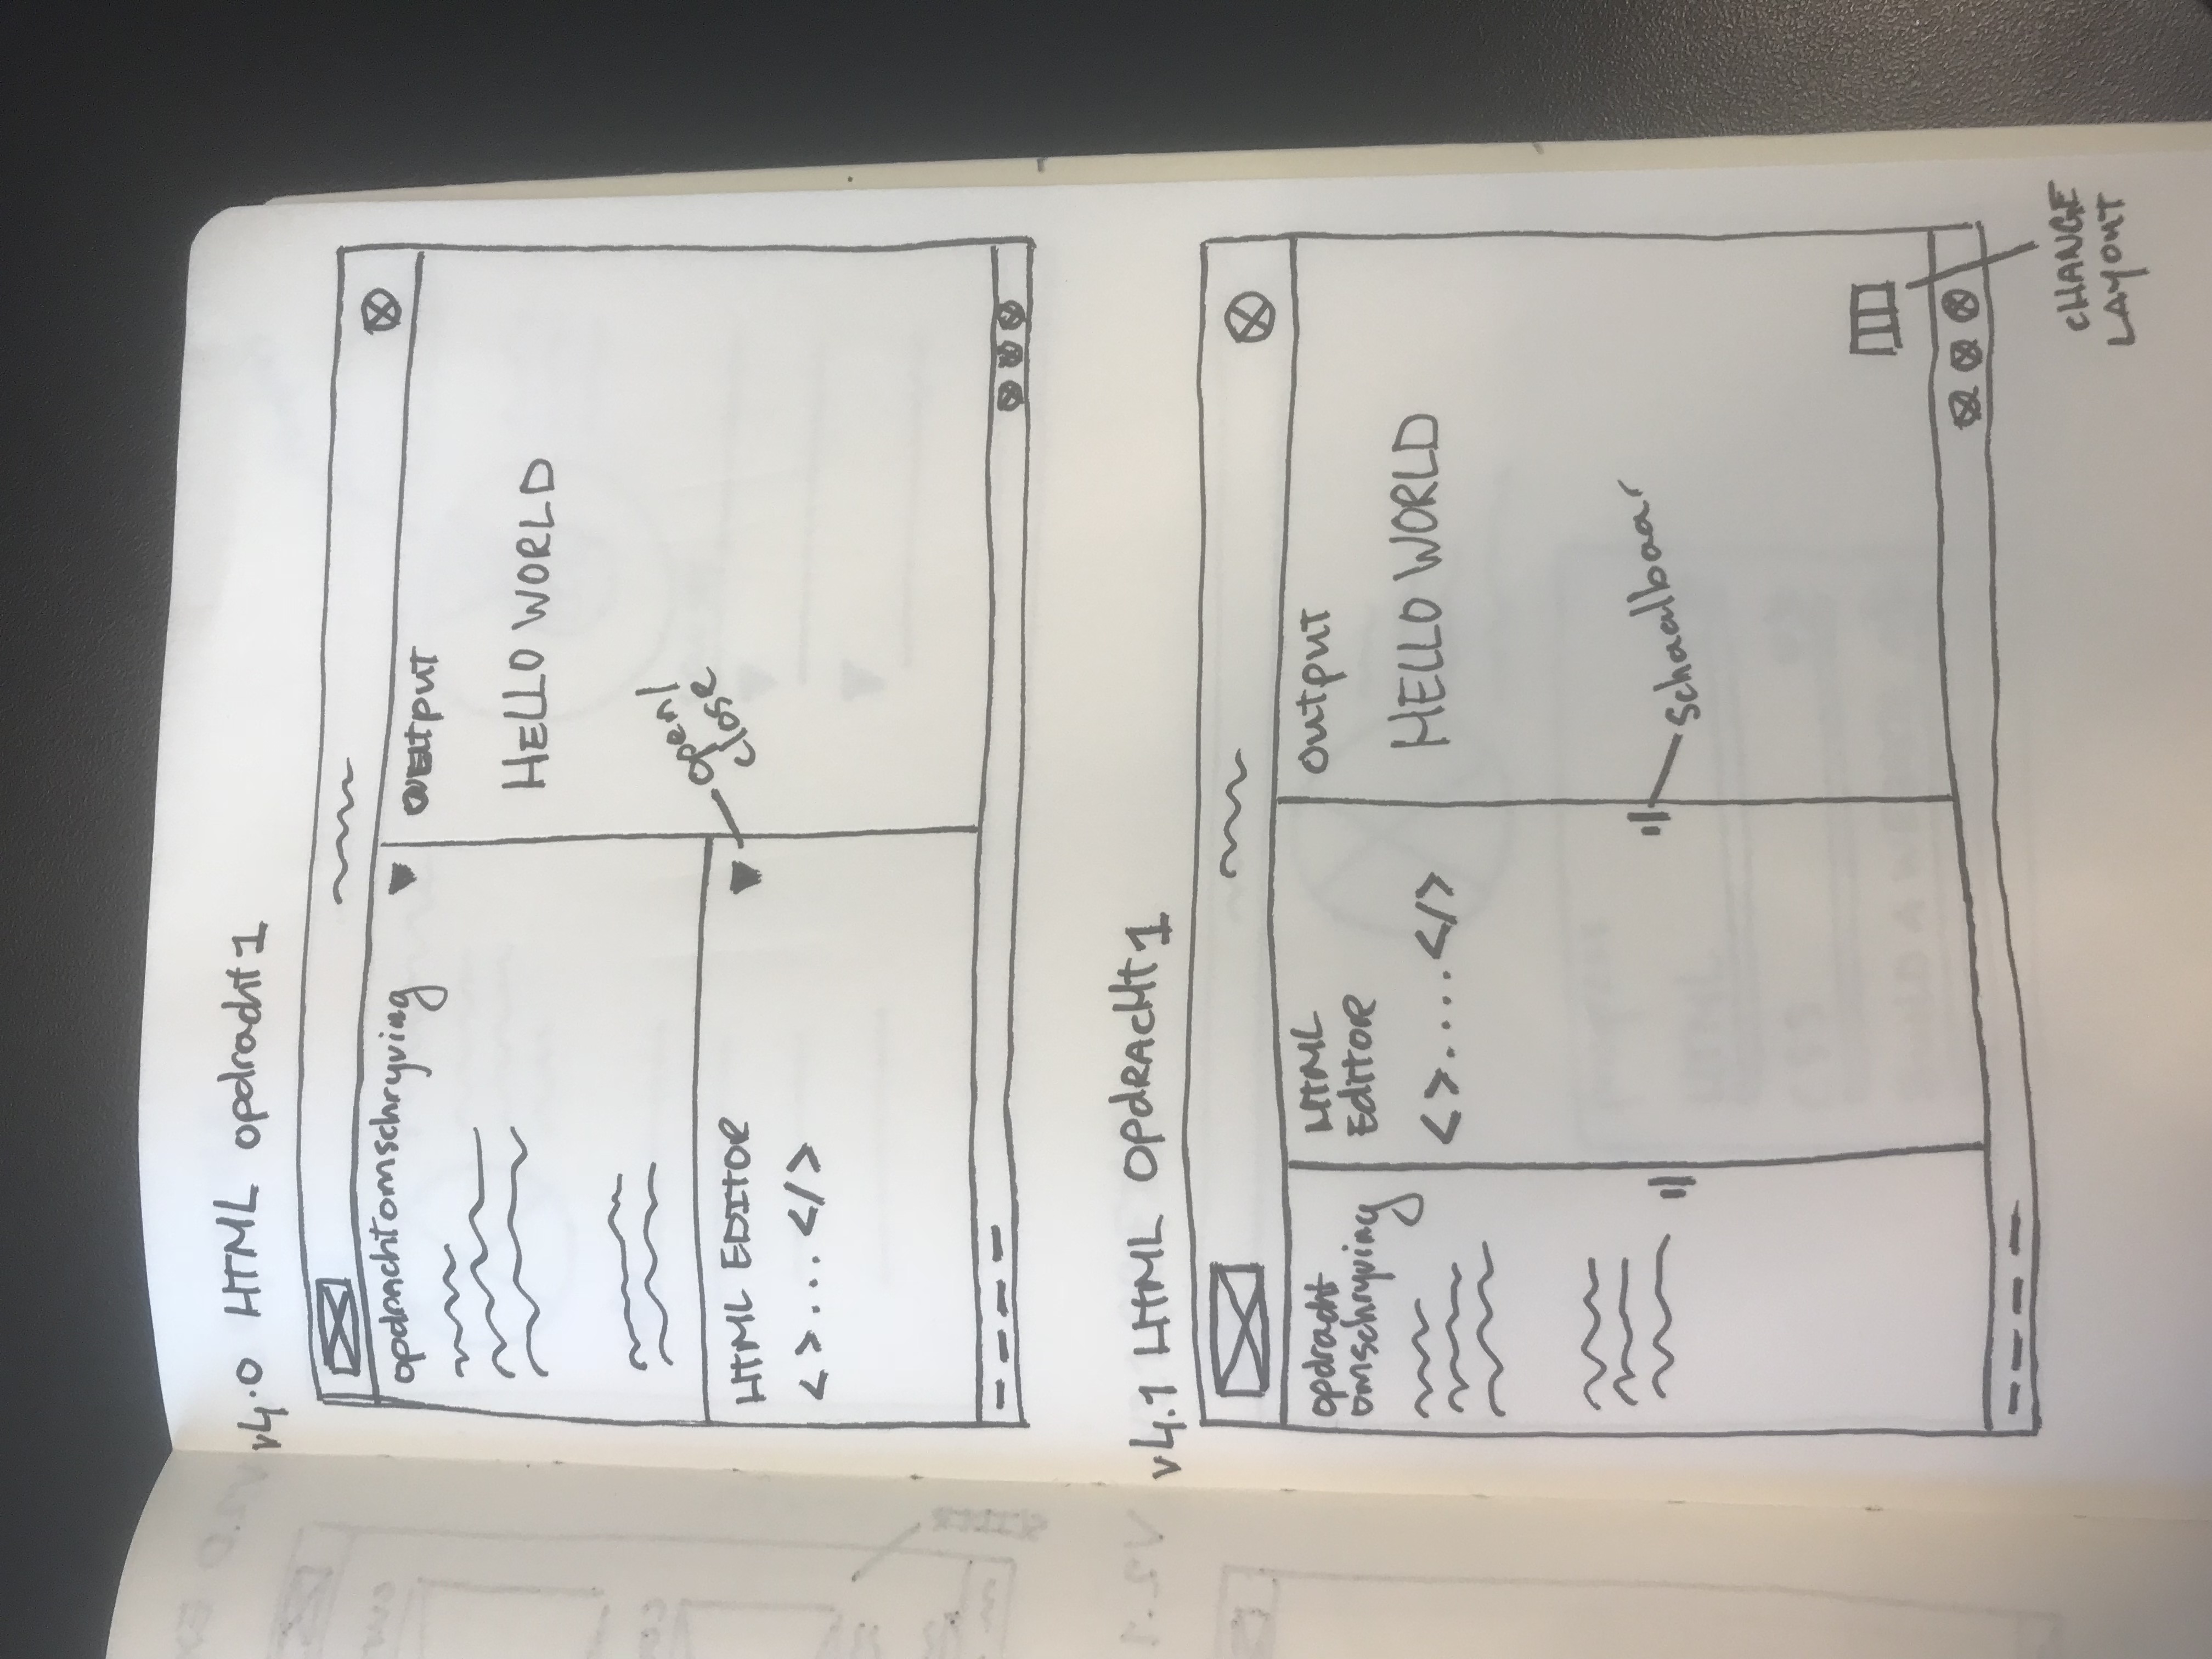 v4.0 HTML opdracht 1
opdrachtomschryving
output
HELLO WORLD
open/
close
HTML EDITOR
<>...</>
v4.1 HTML OPdRAcHt 1
opdracht
omschryving
HTML
EditoR
<>....</>
output
HELLO WORLD
Schaalbaar
cHANGE
LAyouT